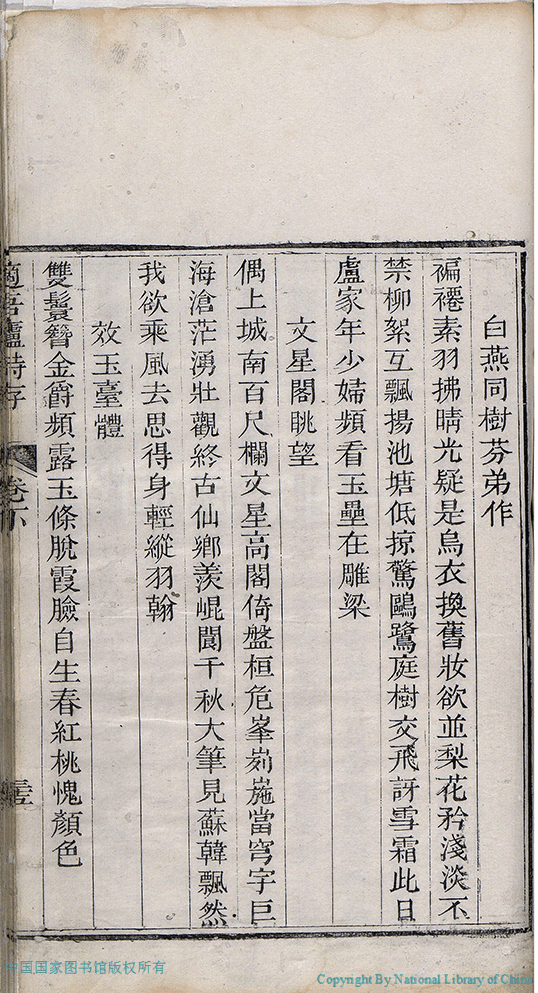 白燕同樹芬弟作
褊褼素羽拂晴光疑是烏衣換舊妝欲並梨花矜淺淡不
禁柳絮互飄揚池塘低掠驚鷗鷺庭樹交飛訝雪霜此日
盧家年少婦頻看玉壘在雕梁
文星閣眺望
偶上城南百尺欄文星高閣倚盤桓危峯峛崺當穹宇巨
海滄茫湧壯觀終古仙鄉羨崐閬千秋大筆見蘇韓飄然
我欲乘風去思得身輕縱羽翰
效玉臺體
雙鬟簪金爵頻露玉條脫霞臉自生春紅桃愧顏色
適吾廬詩存
卷下
中国国家图书馆版权所有
Copyright By National Library of China